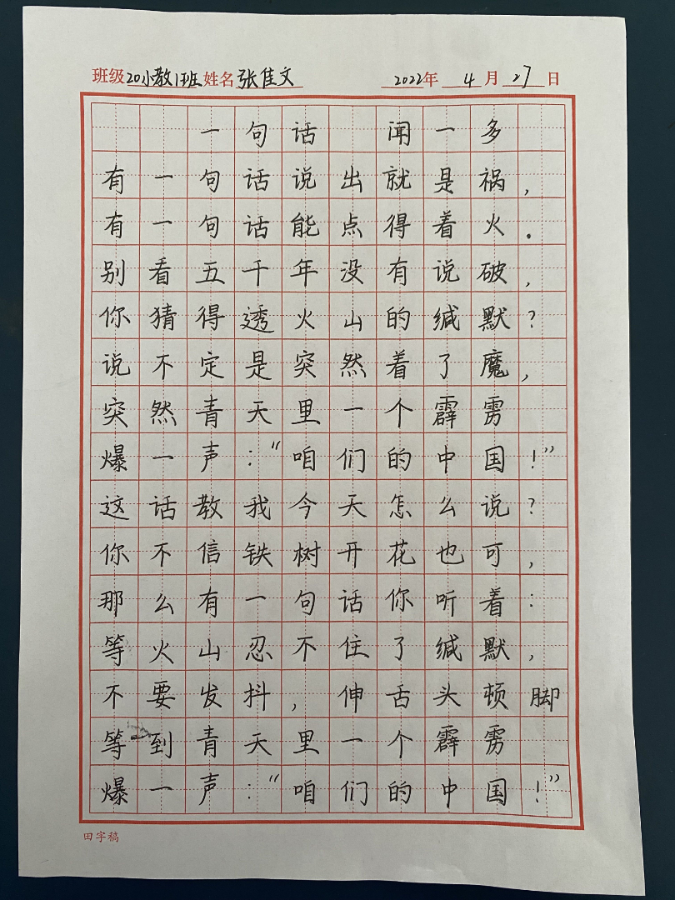 班级20小教1班姓名张佳文 2022年4月27日
一句话 闻一多
有一句话说出就是祸,
有一句话能点得着火.
别看五千年没有说破,
你猜得透火山的缄默?
说不定是突然着了魔,
突然青天里一个霹雳
爆一声:“咱们的中国!”
这话教我今天怎么说?
你不信铁树开花也可,
那么有一句话你听着:
等火山忍不住了缄默,
不要发抖,伸舌头顿脚
等到青天里一个霹雳
爆一声:“咱们的中国!”
田字稿